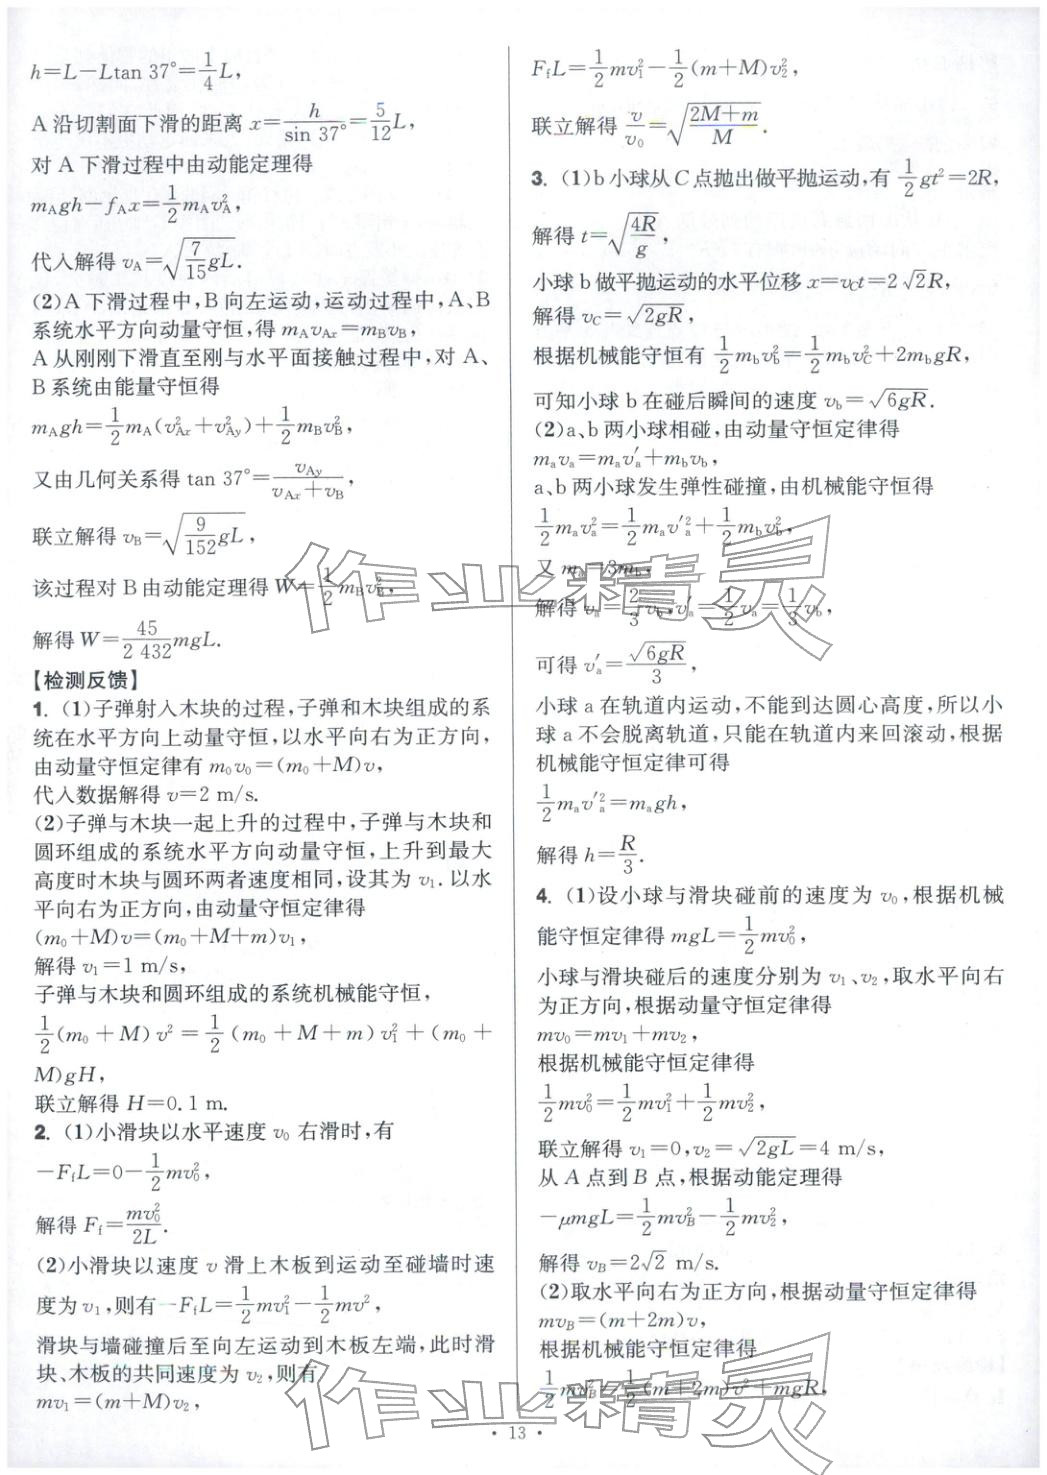 h=L-Ltan 37°=1/4 L,
A 沿切割面下滑的距离 x=h/sin 37°=5/12 L,
对 A 下滑过程中由动能定理得
m_A gh-f_A x=1/2 m_A v_A²,
代入解得 v_A=√(7/15 gL).
(2)A 下滑过程中,B 向左运动,运动过程中,A、B
系统水平方向动量守恒,得 m_A v_Ax=m_B v_B,
A 从刚刚下滑直至刚与水平面接触过程中,对 A、
B 系统由能量守恒得
m_A gh=1/2 m_A(v_Ax²+v_Ay²)+1/2 m_B v_B²,
又由几何关系得 tan 37°=v_Ay/(v_Ax+v_B),
联立解得 v_B=√(9/152 gL),
该过程对 B 由动能定理得 W=1/2 m_B v_B²,
解得 W=45/2 432 mgL.
【检测反馈】
1. (1)子弹射入木块的过程,子弹和木块组成的系
统在水平方向上动量守恒,以水平向右为正方向,
由动量守恒定律有 m₀v₀=(m₀+M)v,
代入数据解得 v=2 m/s.
(2)子弹与木块一起上升的过程中,子弹与木块和
圆环组成的系统水平方向动量守恒,上升到最大
高度时木块与圆环两者速度相同,设其为 v₁. 以水
平向右为正方向,由动量守恒定律得
(m₀+M)v=(m₀+M+m)v₁,
解得 v₁=1 m/s,
子弹与木块和圆环组成的系统机械能守恒,
1/2 (m₀+M) v²=1/2 (m₀+M+m) v₁²+(m₀+
M)gH,
联立解得 H=0.1 m.
2. (1)小滑块以水平速度 v₀ 右滑时,有
-F_f L=0-1/2 mv₀²,
解得 F_f=mv₀²/2L.
(2)小滑块以速度 v 滑上木板到运动至碰墙时速
度为 v₁,则有-F_f L=1/2 mv₁²-1/2 mv²,
滑块与墙碰撞后至向左运动到木板左端,此时滑
块、木板的共同速度为 v₂,则有
mv₁=(m+M)v₂,
F_f L=1/2 mv₁²-1/2 (m+M)v₂²,
联立解得 v/v₀=√((2M+m)/M).
3. (1)b 小球从 C 点抛出做平抛运动,有 1/2 gt²=2R,
解得 t=√(4R/g),
小球 b 做平抛运动的水平位移 x=v_C t=2√2R,
解得 v_C=√(2gR),
根据机械能守恒有 1/2 m_b v_b²=1/2 m_b v_C²+2m_b gR,
可知小球 b 在碰后瞬间的速度 v_b=√(6gR).
(2)a、b 两小球相碰,由动量守恒定律得
m_a v_a=m_a v′_a+m_b v_b,
a、b 两小球发生弹性碰撞,由机械能守恒得
1/2 m_a v_a²=1/2 m_a v′_a²+1/2 m_b v_b²,
又 m_a=3m_b,
解得 v_a=2/3 v_b,v′_a=1/2 v_a=1/3 v_b,
可得 v′_a=√(6gR)/3,
小球 a 在轨道内运动,不能到达圆心高度,所以小
球 a 不会脱离轨道,只能在轨道内来回滚动,根据
机械能守恒定律可得
1/2 m_a v′_a²=m_a gh,
解得 h=R/3.
4. (1)设小球与滑块碰前的速度为 v₀,根据机械
能守恒定律得 mgL=1/2 mv₀²,
小球与滑块碰后的速度分别为 v₁、v₂,取水平向右
为正方向,根据动量守恒定律得
mv₀=mv₁+mv₂,
根据机械能守恒定律得
1/2 mv₀²=1/2 mv₁²+1/2 mv₂²,
联立解得 v₁=0,v₂=√(2gL)=4 m/s,
从 A 点到 B 点,根据动能定理得
-μmgL=1/2 mv_B²-1/2 mv₂²,
解得 v_B=2√2 m/s.
(2)取水平向右为正方向,根据动量守恒定律得
mv_B=(m+2m)v,
根据机械能守恒定律得
1/2 mv_B²=1/2 (m+2m)v²+mgR,
· 13 ·
作业精灵
作业精灵